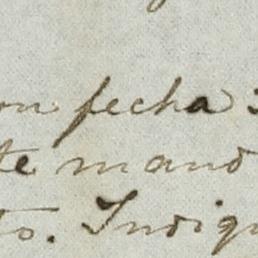 on fecha 3
te mand
to. Indiq